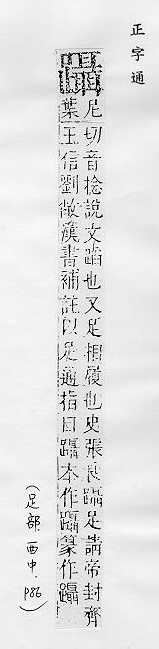 正字通
躡
尼切音捻說文蹈也又足相也史張良躡足請帝封齊
葉王信劉攽漢書補註以足指曰躡本作躡篆作躡
(足部.酉中.P86)